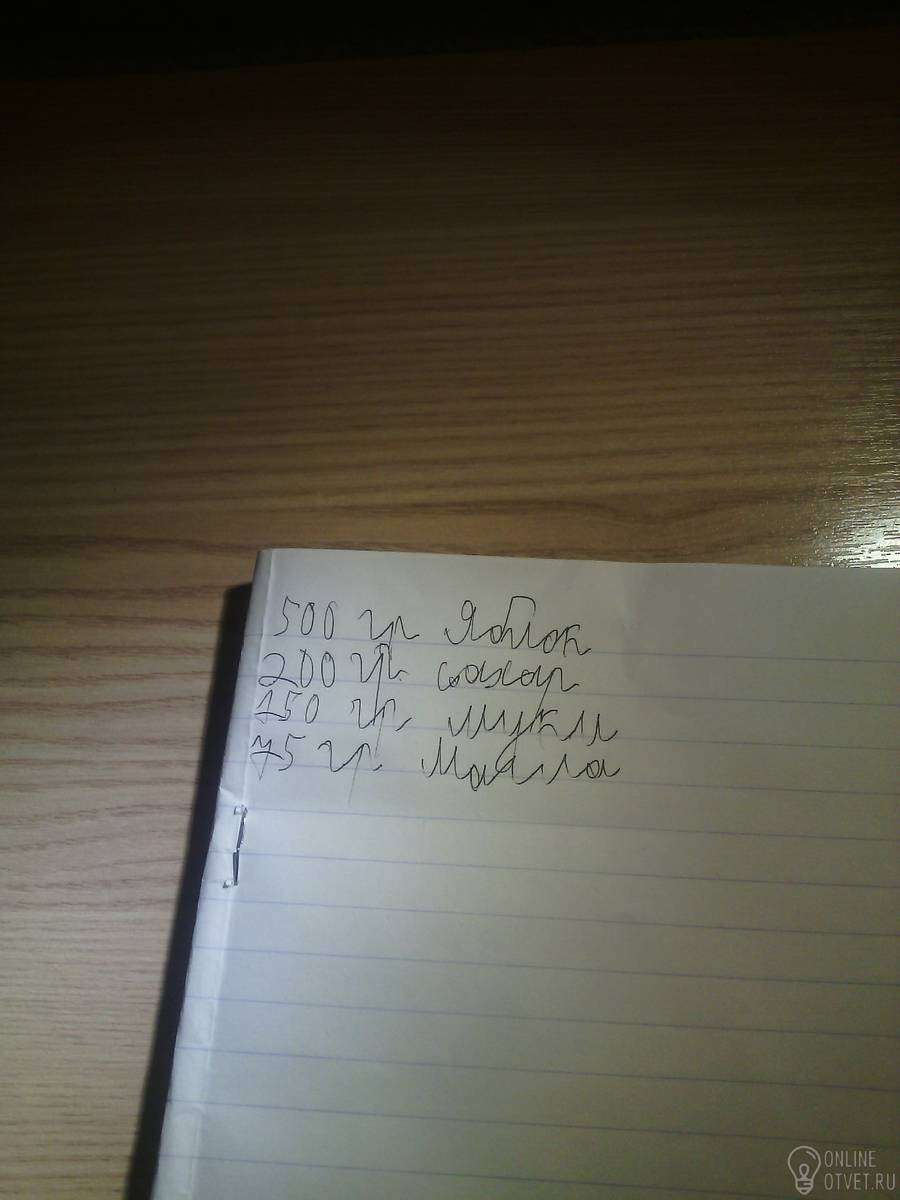 500 гр Яблок
200 гр. сахар
150 гр. муки
75 гр. Масла
ONLINE
OTVET.RU